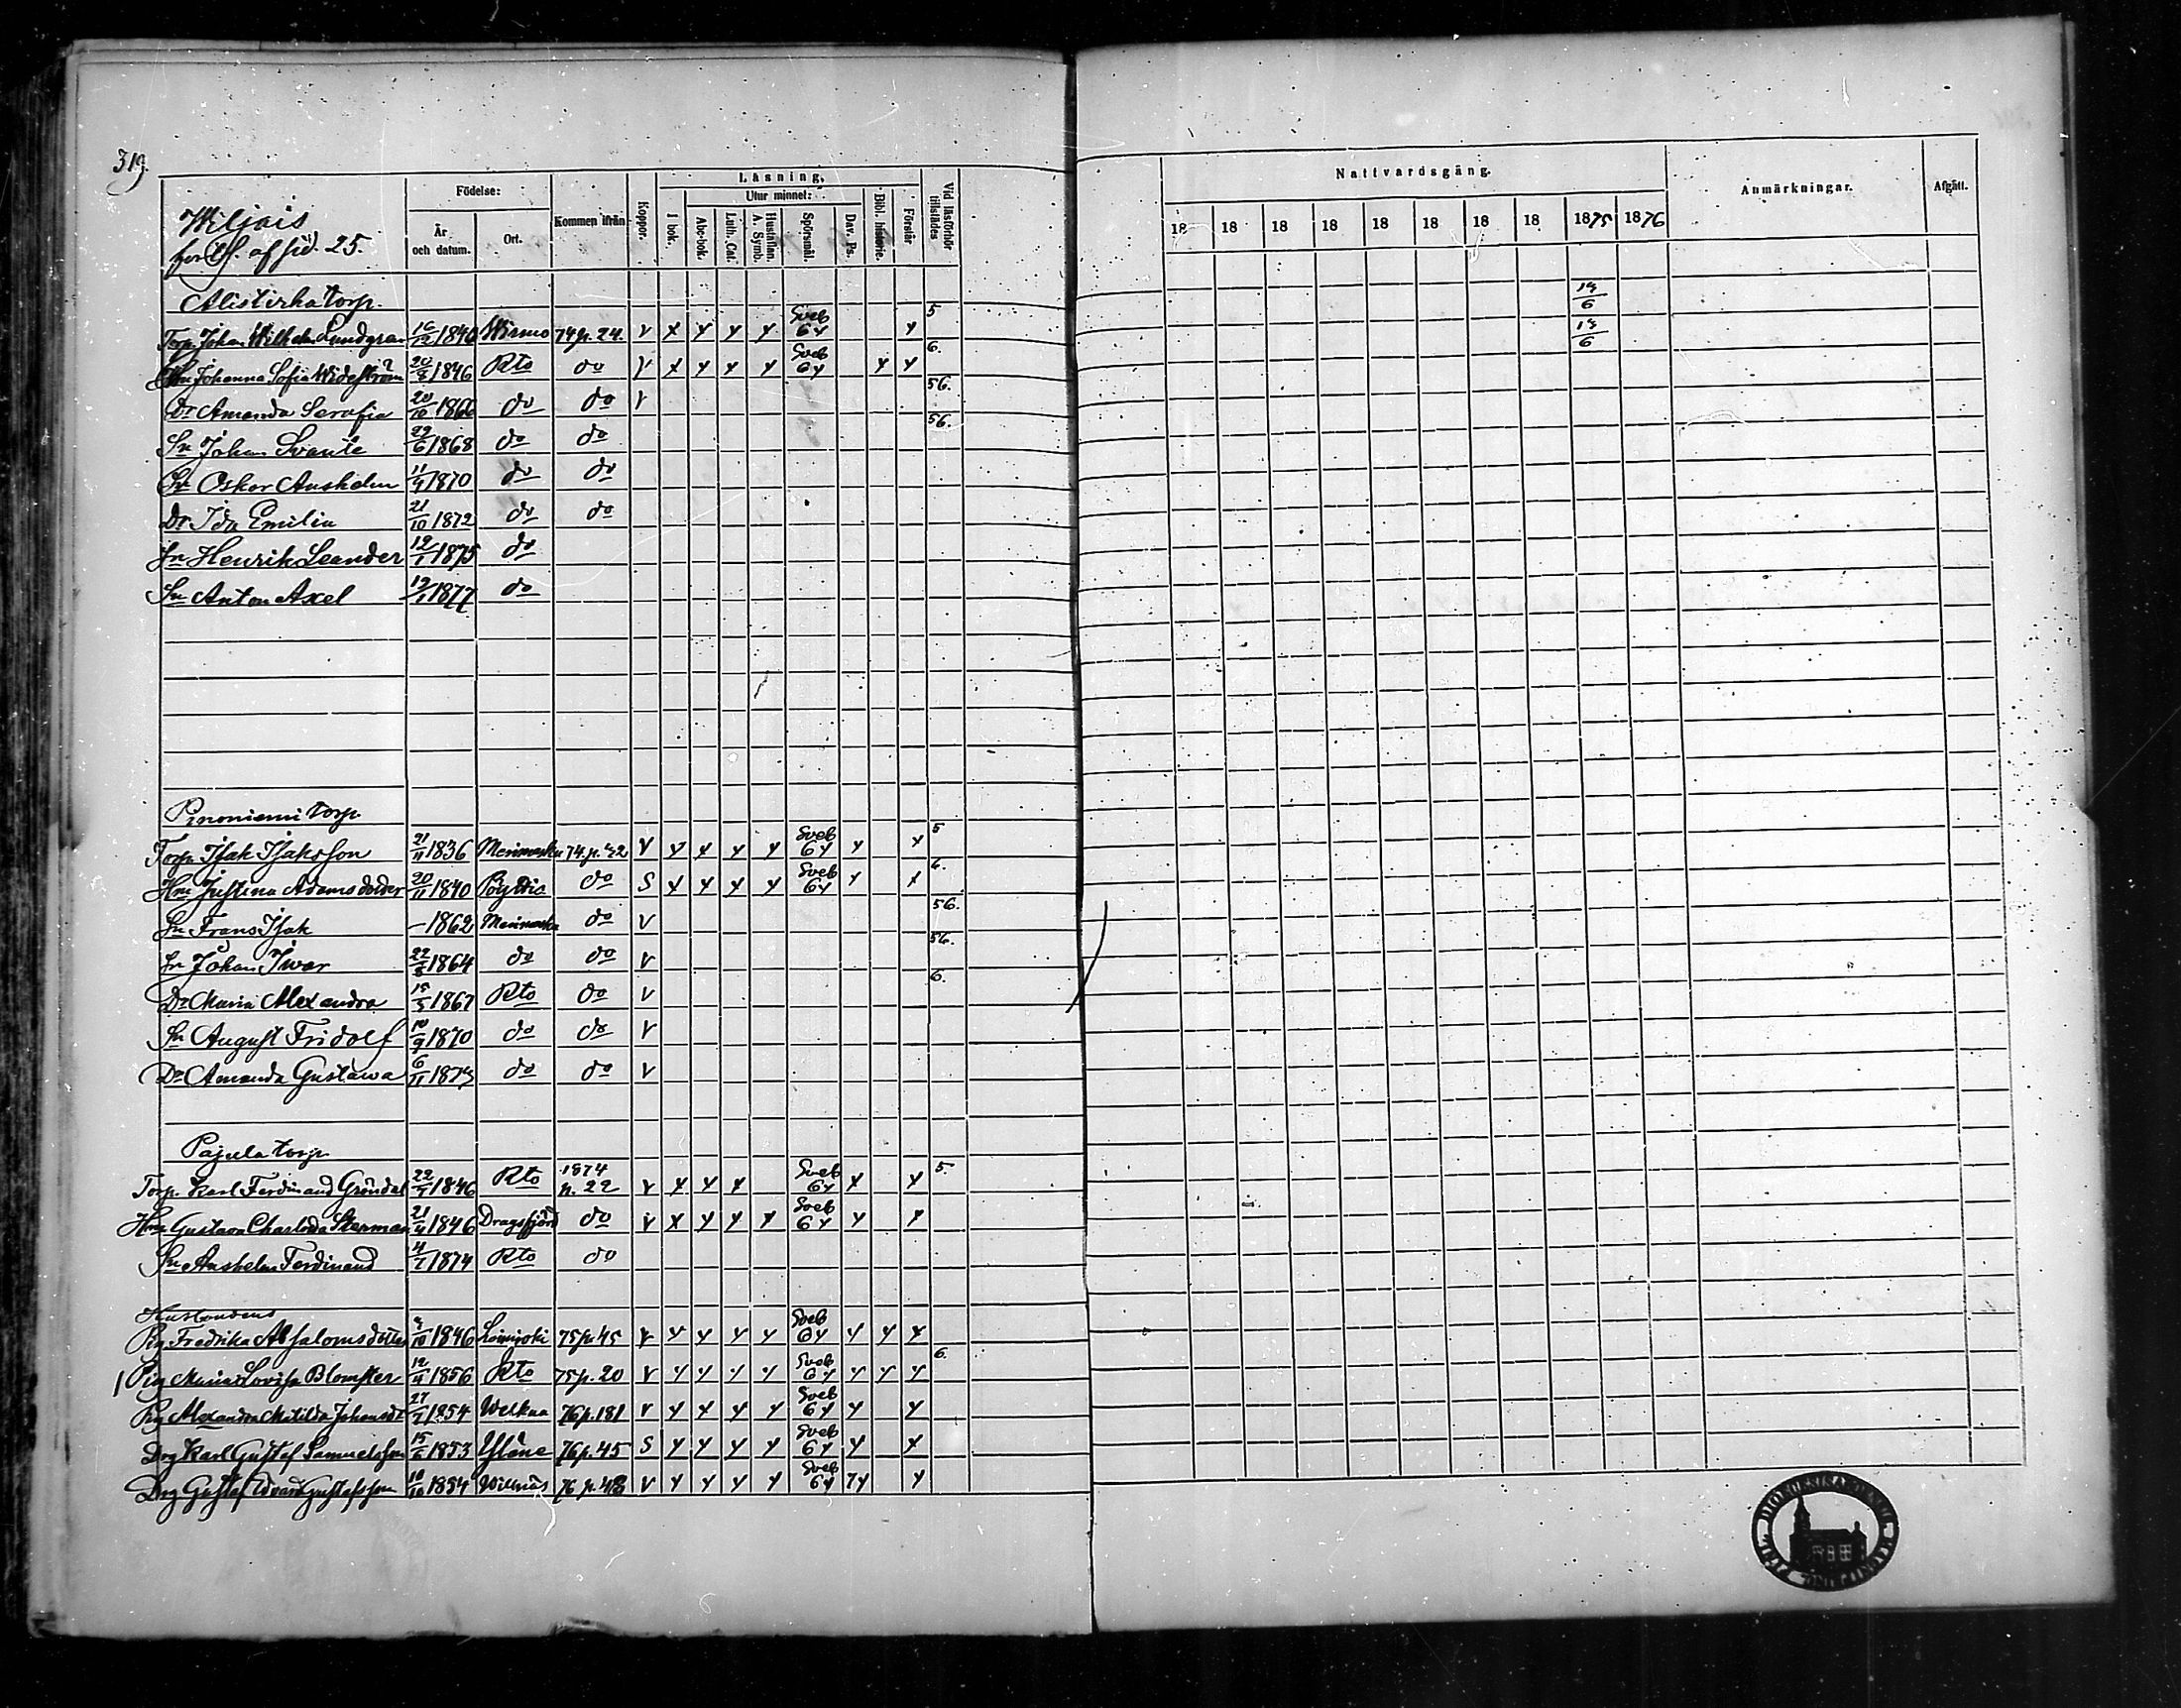 319.
Wiljais
forts. af sid. 25.
Födelse:
År och datum.
Ort.
Kommen ifrån
Koppor.
Läsning.
I bok.
Utur minnet:
Abc-bok.
Luth. Cat.
Hustaflan. A. Symb.
Spörsmål.
Dav. Ps.
Bibl. historie.
Förstår
Vid läsförhör tillstädes
Nattvardsgång.
18 18 18 18 18 18 18 18 1875 1876
Anmärkningar.
Afgått.
Alistirha torp.
Torp. Johan Wilhelm Lundgren 16/12 1840 Wirmo 74 p. 24. v x y y y Sveb 6y y 5 19/6
Hu Johanna Sofia Wideström 20/8 1846 Rto do v x y y y Sveb 6y y y 6. 19/6
Dr Amanda Serafia 20/10 1866 do do v 56.
Sn Johan Svante 22/6 1868 do do 56.
Sn Oskar Anshelm 11/4 1870 do do
Dr Ida Emilia 21/10 1872 do do
Sn Henrik Leander 12/1 1875 do
Sn Anton Axel 1877 do
Pinoniemi torp.
Torp. Isak Isaksson 21/11 1836 Merimasku 74. p. 22 v y y y y Sveb 6y y y 5
Hu Justina Adamsdotter 20/11 1840 Pöytis do S y y y y Sveb 6y y x 6.
Sn Frans Isak – 1862 Merimasku do v 56.
Sn Johan Iwar 22/8 1864 do do v 56.
Dr Maria Alexandra 15/5 1867 Rto do v 6.
Sn August Fridolf 10/9 1870 do do v
Dr Amanda Gustawa 6/11 1873 do do v
Pajula torp.
Torp. Karl Ferdinand Gröndal 22/4 1846 Rto 1874 p. 22 v x y x Sveb 6y x x 5.
Hu Gustava Charlotta Sterman 21/4 1846 Dragsfjärd do v x y y x Sveb 6y y x
Sn Anshelm Ferdinand 4/7 1874 Rto do
Husbondens
Pig Fredrika Absalomsdotter 9/10 1846 75 p. 45 v y y y y Sveb 6y y y x
Pig Maria Lovisa Blomster 12/11 1856 Rto 75 p. 20 v y y y y Sveb 6y y y y 6.
Pig Alexandra Matilda Johansdr 27/2 1854 Welkua 76 p. 181 v y y y y Sveb 6y y y
Drg Karl Gustaf Samuelsson 15/6 1853 Yläne 76 p. 45 S y y y y Sveb 6y y y
Drg Gustaf Edvard Gustafsson 10/10 1854 Willnäs 76 p. 48 v y y y y Sveb 6y 7y y